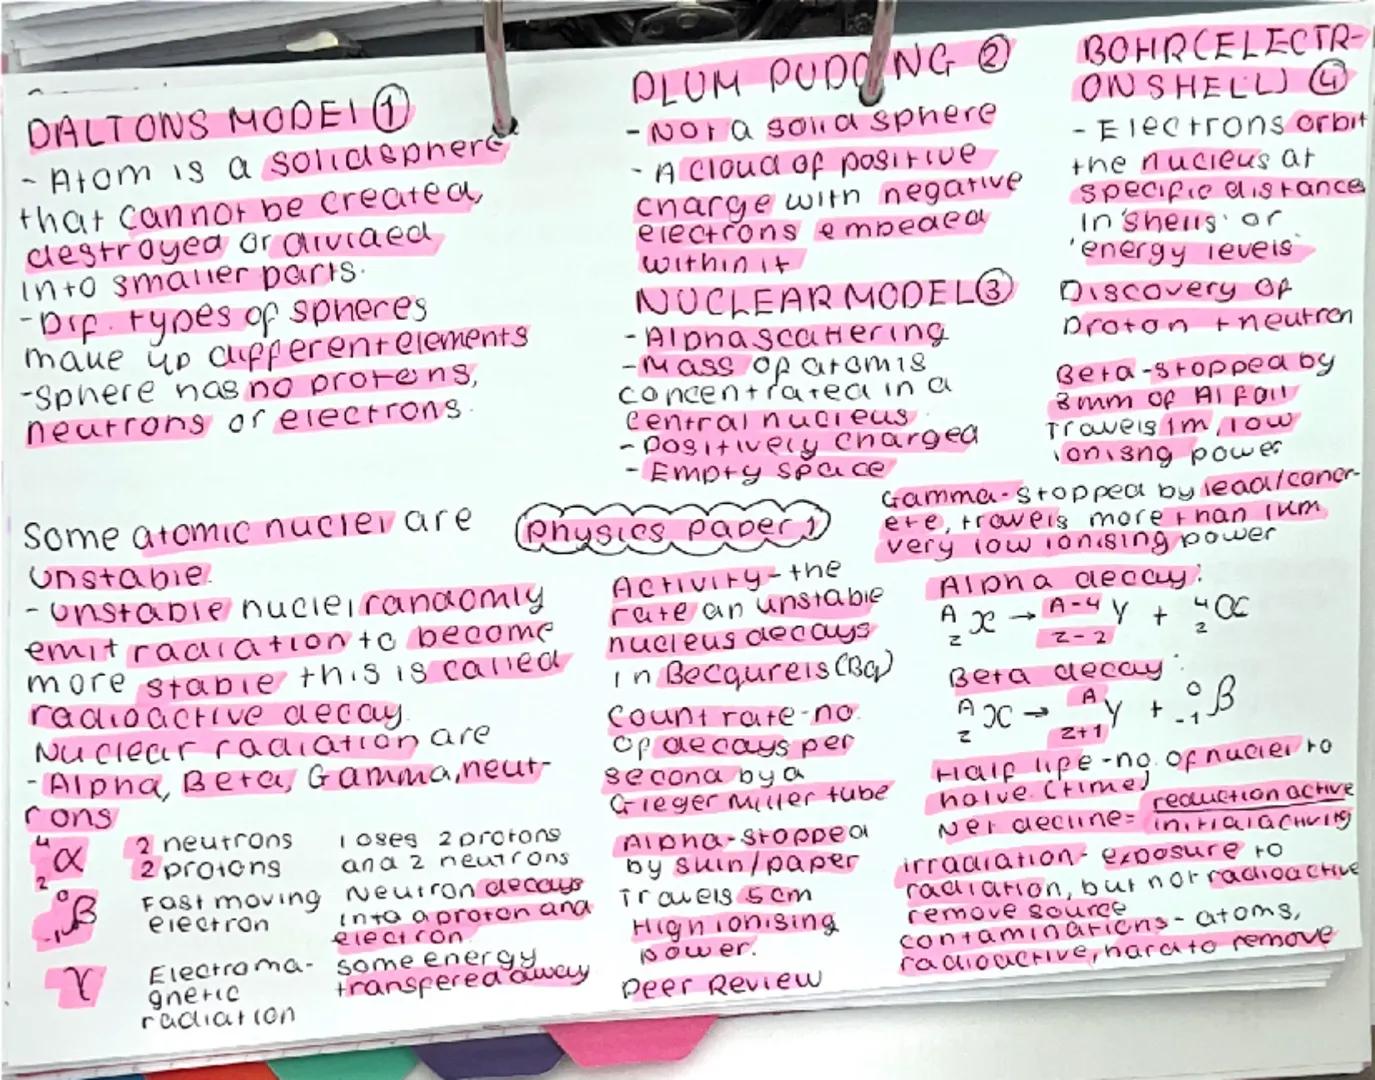 DALTONS MODEL ①
- Atom is a solid sphere
that cannot be created,
destroyed or divided
into smaller parts.
- Dif. types of spheres
make up different elements
- Sphere has no protons,
neutrons or electrons.
PLUM PUDDING ②
- Not a solid sphere
- A cloud of positive
charge with negative
electrons embeded
within it
NUCLEAR MODEL ③
- Alpha scattering
- Mass of atom is
concentrated in a
central nucleus.
- positively charged
- Empty space
BOHR (ELECTR-
ON SHELL) ④
- Electrons orbit
the nucleus at
specific distances
in 'shells' or
'energy levels'
Discovery of
Proton + neutron
Beta - stopped by
3mm of Al foil
Travels 1m, low
ionisng power
Gamma - stopped by lead/concr-
ete, travels more than 1km
very low ionising power
Physics paper 1
Some atomic nuclei are
unstable.
- unstable nuclei randomly
emit radiation to become
more stable this is called
radioactive decay.
Nuclear radiation are
- Alpha, Beta, Gamma, neut-
rons
4 2 α 2 neutrons 2 protons loses 2 protons and 2 neutrons
0 -1 β Fast moving electron Neutron decays into a proton and electron
γ Electroma-gnetic radiation some energy transfered away
Activity - the
rate an unstable
nucleus decays
in Becqurels (Bq)
Count rate - no.
of decays per
second by a
Gieger Muller tube
Alpha - stopped
by skin/paper
Travels 5cm
High ionising
power.
Peer Review
Alpha decay:
A Z X → A-4 Z-2 Y + 4 2 α
Beta decay:
A Z X → A Z+1 Y + 0 -1 β
Half life - no. of nuclei to
halve. (time)
Net decline = reduction active / initial activity
irradiation - exposure to
radiation, but not radioactive
remove source
contaminations - atoms,
radioactive, hard to remove